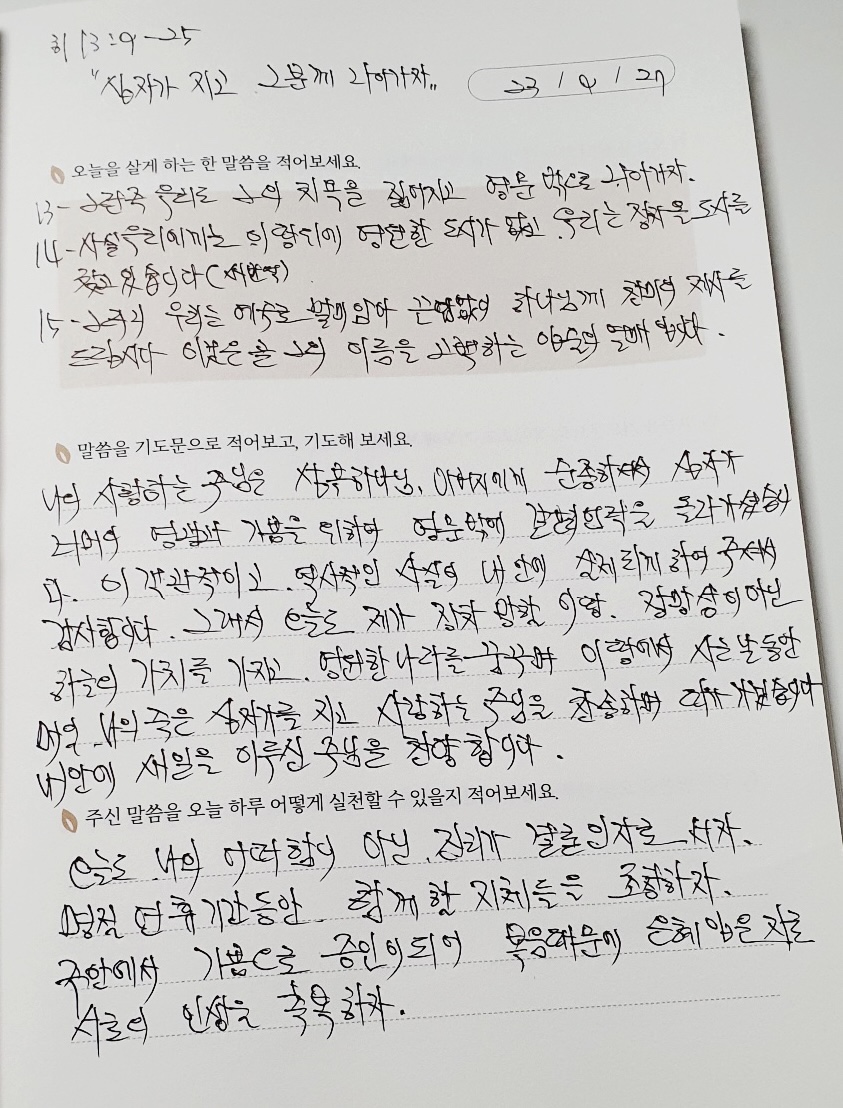 히 13:9-25
"십자가 지고 그분께 나아가자"
23 / 9 / 27
오늘을 살게 하는 한 말씀을 적어보세요.
13- 그런즉 우리도 그의 치욕을 짊어지고 영문 밖으로 나아가자.
14- 사실 우리에게는 이 땅위에 영원한 도시가 없고, 우리는 장차올 도시를
찾고 있습니다(새번역)
15- 그러니 우리는 예수로 말미암아 끊임없이 하나님께 찬미의 제사를
드립시다 이것은 곧 그의 이름을 고백하는 입술의 열매 입니다.
말씀을 기도문으로 적어보고, 기도해 보세요.
나의 사랑하는 주님은 삼복하나님, 아버지에게 순종하셔서 십자가
너머의 영생과 기쁨을 위하여 영문밖에 골고다언덕을 올라가셨습니
다. 이 객관적이고 역사적인 사실이 내 안에 실제되게 하여 주셔서
감사합니다. 그래서 오늘도 제가 장차 망할 이땅, 장망성이 아닌
하늘의 가치를 가지고, 영원한 나라를 꿈꾸며 이 땅에서 사는 날동안
매일 나의 죽은 십자가를 지고 사랑하는 주님을 찬송하며 따라 가겠습니다
내안에 새일을 이루실 주님을 찬양 합니다.
주신 말씀을 오늘 하루 어떻게 실천할 수 있을지 적어보세요.
오늘도 나의 어떠함이 아닌, 진리가 결론인자로 서자.
명절 연휴기간동안 함께 할 지체들을 초청하자.
주안에서 기쁨으로 증인이되어 복음때문에 은혜 입은 자로
서로의 인생을 축복하자.